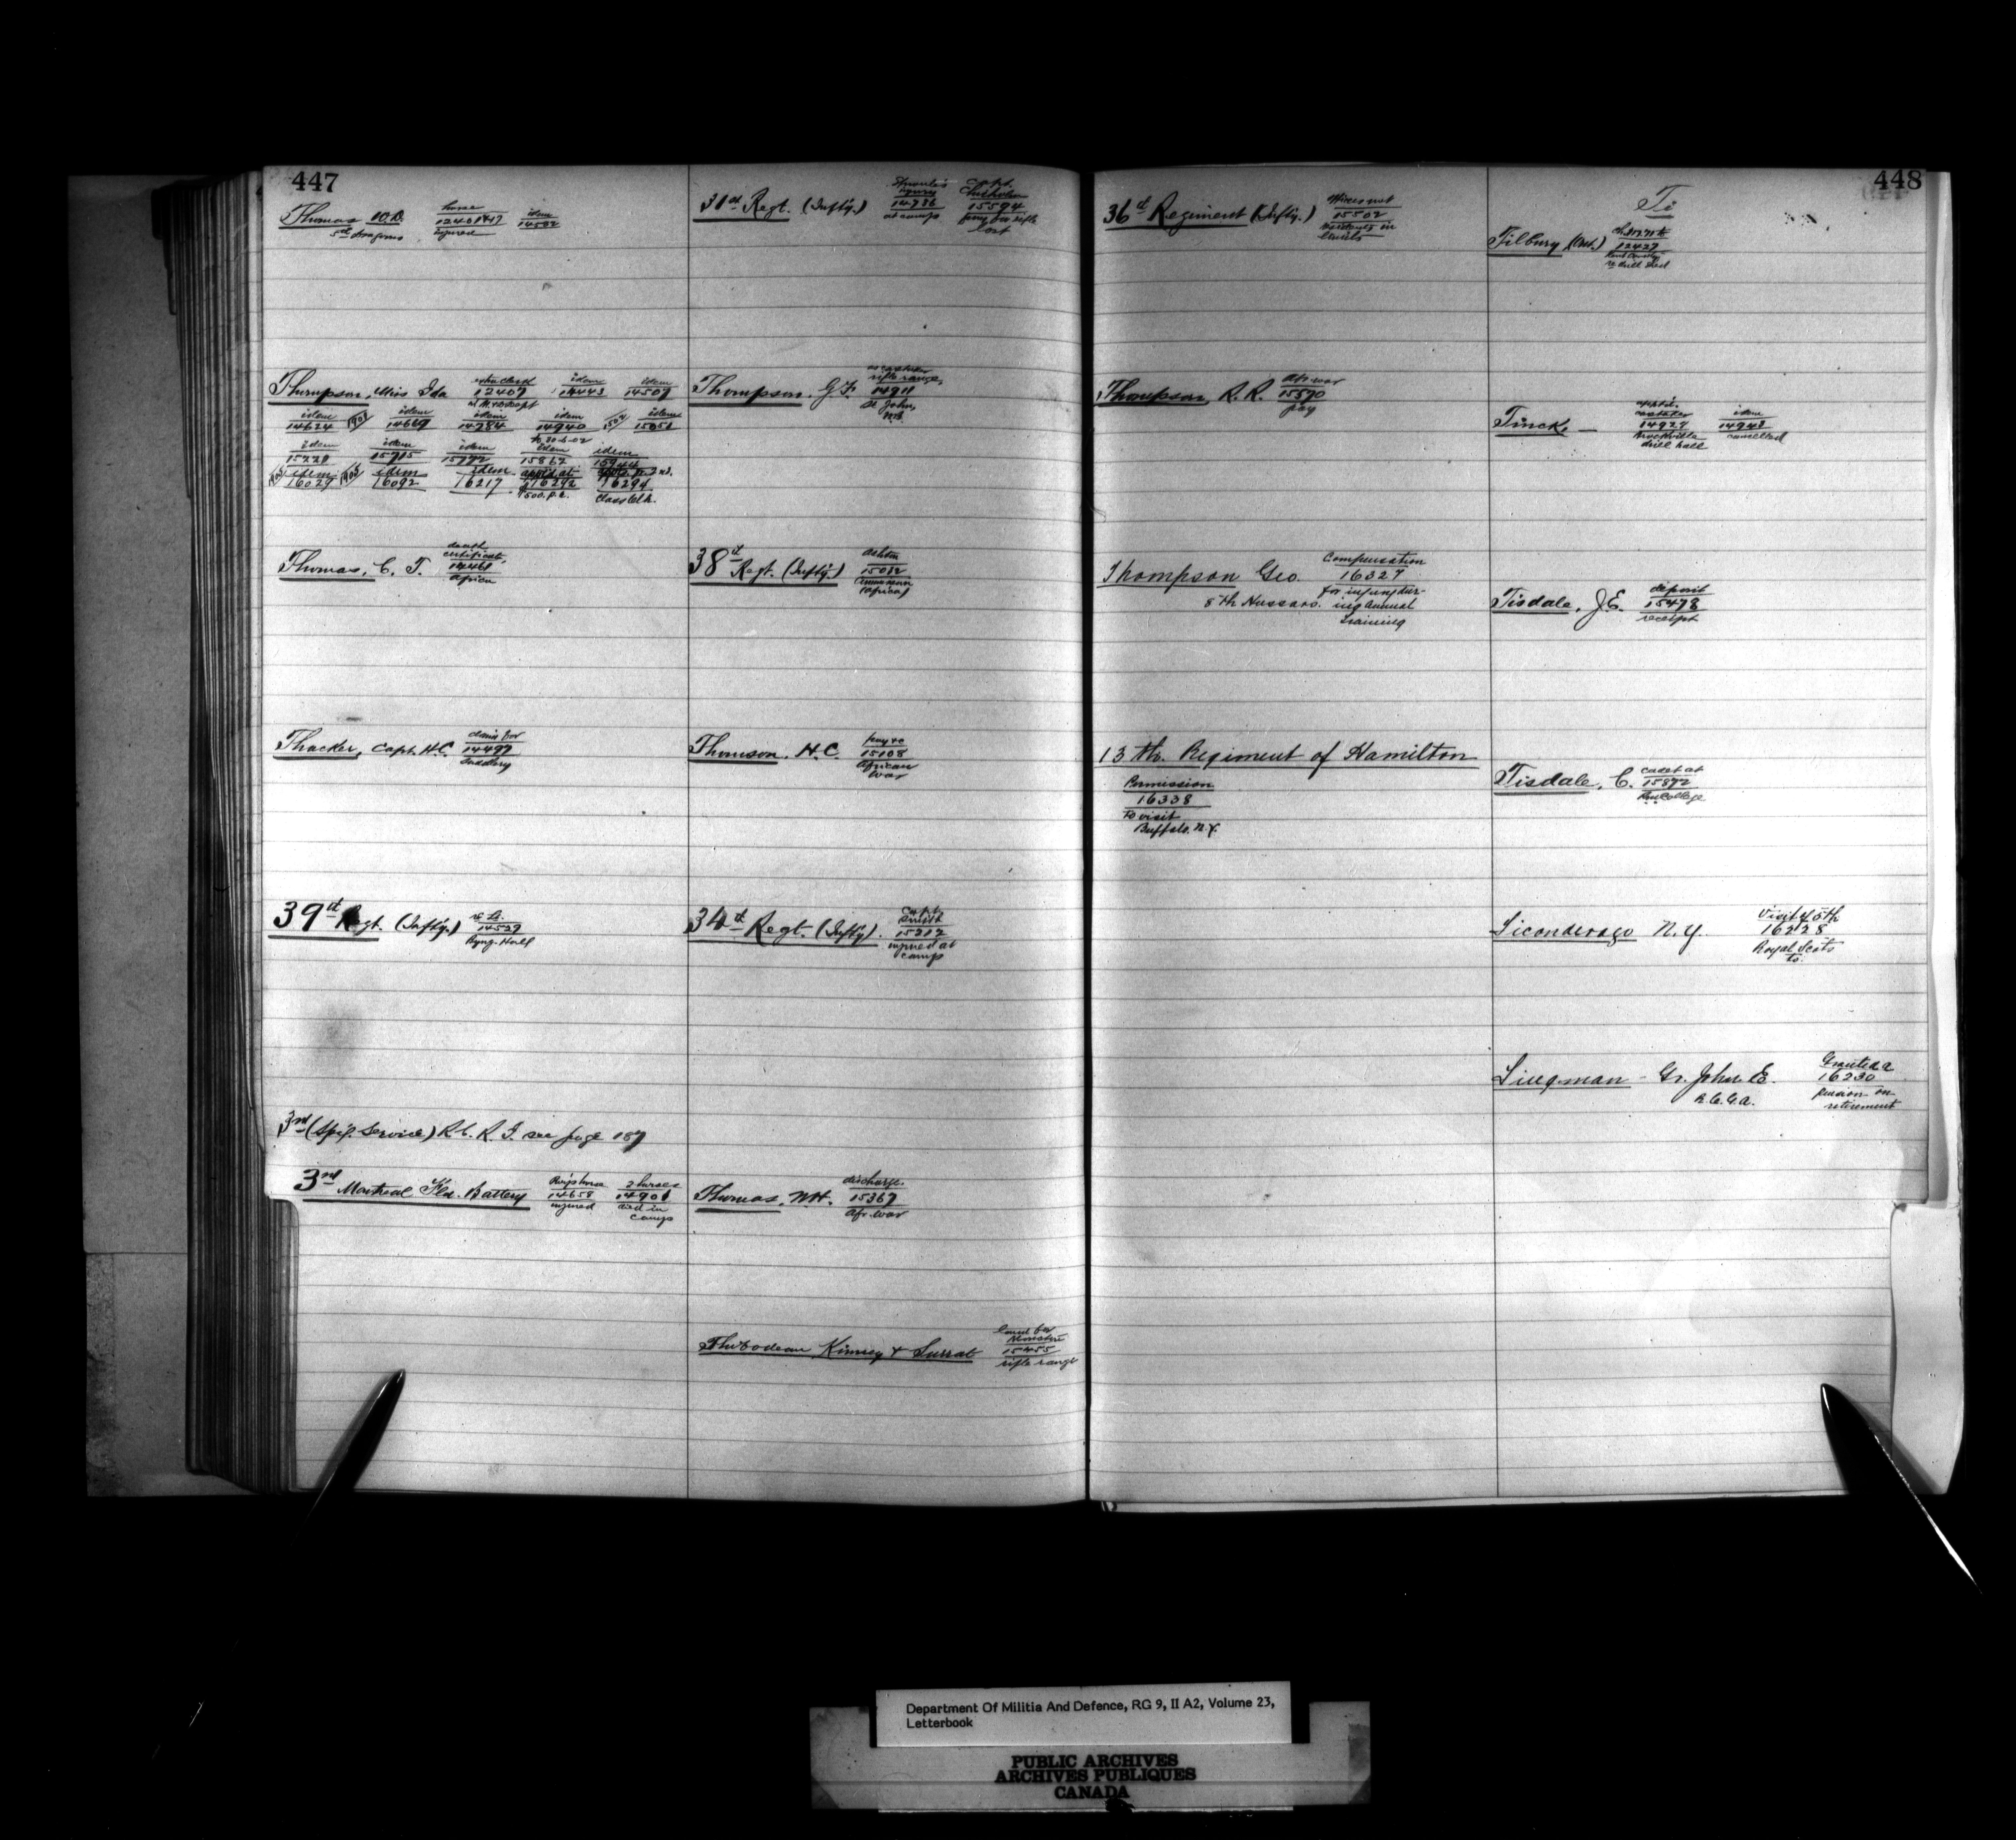 447
Thomas W.D.
5th Dragoons
horse
12401
injured
idem
14502
Thompson, Miss Ida
extra clerk
12407
idem
14443
idem
14507
idem
14624
1901
idem
14669
idem
14784
idem
14940
1902
idem
15051
to 30-6-02
idem
15221
idem
15715
idem
15792
idem
15862
idem
15944
1903
idem
16029
1903
idem
16092
idem
16217
appt'd at
16292
$500. p.a.
16294
Class Clk.
Thomas, C. T.
death
certificate
14461
Africa
Thacker, Capt. H.C.
claim for
14497
Saddlery
39th Regt. (Infty.)
14529
3rd (Sp'l. Service) R.C.R.I. see page 187
3rd Montreal Fld. Battery
14658
injured
2 horses
14901
died in
camp
31st Regt. (Infty.)
injury
14736
at camp
Capt.
Chisholm
15594
pay for rifle
lost
Thompson, G.F.
caretaker
rifle range,
14911
St John,
N.B.
38th Regt. (Infty.)
15012
Africa
Thomson, H.C.
pay &c
15108
African
War
34th Regt. (Infty).
Capt.
Smith
15212
injured at
camp
Thomas, W.H.
discharge
15367
Afr. War
Thibodeau Kinsey &
15455
rifle range
448
36th Regiment (Infty.)
15502
Thompson, R. R.
Afr war
15570
pay
Thompson Geo.
8th Hussars.
Compensation
16327
for injury dur-
ing annual
training
13th. Regiment of Hamilton
Permission
16338
to visit
Buffalo, N.Y.
Ti
Tilbury (Ont.)
12427
re drill shed
Tinck, —
caretaker
14927
Brockville
drill hall
idem
14948
cancelled
Tisdale, J.E.
deposit
15478
receipt
Tisdale, C.
cadet at
15872
College
Ticonderago N.Y.
Visit of 5th
16228
Royal Scots
to.
Tingman - Gr. John E.
R.C.G.A.
Granted a
16230
pension on
retirement
Department Of Militia And Defence, RG 9, II A2, Volume 23,
Letterbook
PUBLIC ARCHIVES
ARCHIVES PUBLIQUES
CANADA